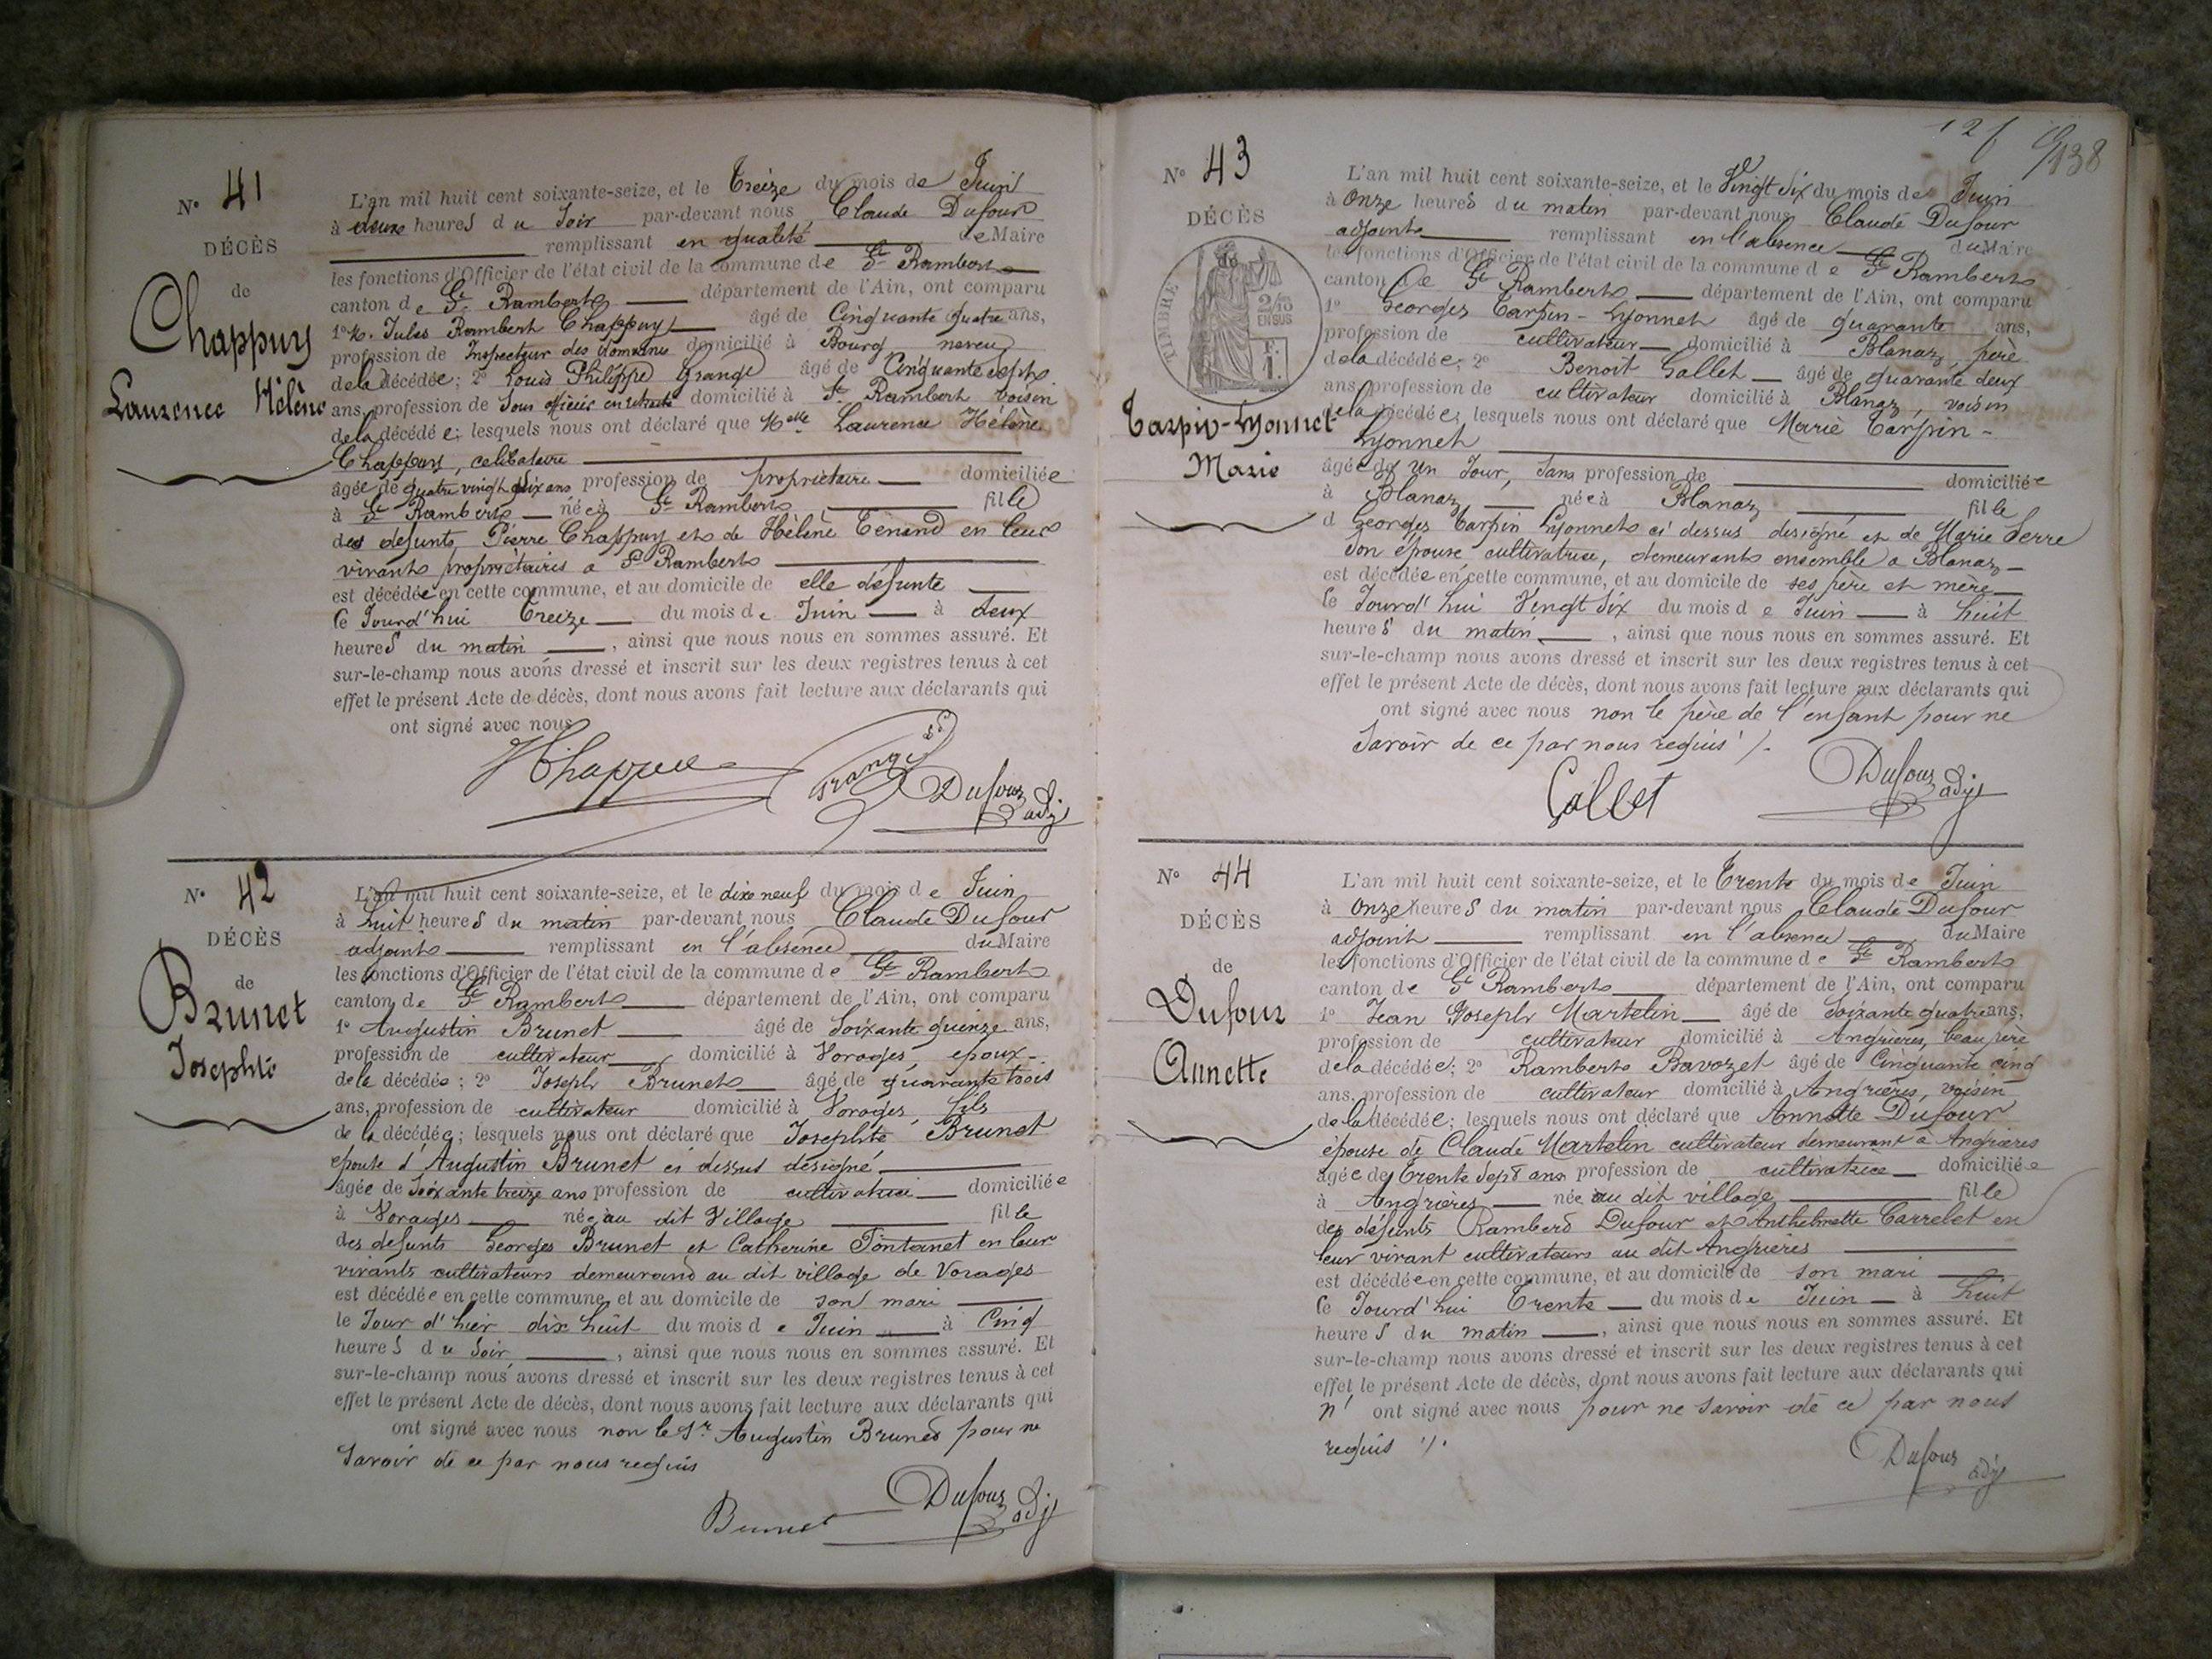 N° 41
DÉCÈS
de
Chappuy
Laurence Hélène
L'an mil huit cent soixante-seize, et le Treize du mois de Juin
à deux heures du Soir par-devant nous Claude Dufour
remplissant en qualité de Maire
les fonctions d'Officier de l'état civil de la commune de St Rambert
canton de St Rambert département de l'Ain, ont comparu
1° M. Jules Rambert Chappuy âgé de Cinquante quatre ans,
profession de Inspecteur des domaines domicilié à Bourg neveu
de la décédée; 2° Louis Philippe Grange âgé de Cinquante sept
ans, profession de Sous officier en retraite domicilié à St Rambert voisin
de la décédée; lesquels nous ont déclaré que Melle Laurence Hélène
Chappuy, celibataire
âgée de quatre vingt dix ans profession de propriétaire domiciliée
à St Rambert née à St Rambert fille
des defunts Pierre Chappuy et de Hélène Tenand en leur
vivants propriétaires a St Rambert
est décédée en cette commune, et au domicile de elle défunte
ce Jourd'hui Treize du mois de Juin à deux
heures du matin, ainsi que nous nous en sommes assuré. Et
sur-le-champ nous avons dressé et inscrit sur les deux registres tenus à cet
effet le présent Acte de décès, dont nous avons fait lecture aux déclarants qui
ont signé avec nous
Grange
Dufour adj
N° 42
DÉCÈS
de
Brunet
Josephte
L'an mil huit cent soixante-seize, et le dixe neuf du mois de Juin
à huit heures du matin par-devant nous Claude Dufour
adjoint remplissant en l'absence du Maire
les fonctions d'Officier de l'état civil de la commune de St Rambert
canton de St Rambert département de l'Ain, ont comparu
1° Augustin Brunet âgé de Soixante quinze ans,
profession de cultivateur domicilié à Vorages, epoux
de la décédée; 2° Joseph Brunet âgé de quarante trois
ans, profession de cultivateur domicilié à Vorages, fils
de la décédée; lesquels nous ont déclaré que Josephte Brunet
epouse d'Augustin Brunet ci dessus désigné
âgée de Soixante treize ans profession de cultivatrice domiciliée
à Vorages née au dit Village fille
des defunts Georges Brunet et Catherine Fontanet en leur
vivants cultivateurs demeurand au dit village de Vorages
est décédée en cette commune, et au domicile de son mari
le Jour d'hier dix huit du mois de Juin à Cinq
heures du Soir, ainsi que nous nous en sommes assuré. Et
sur-le-champ nous avons dressé et inscrit sur les deux registres tenus à cet
effet le présent Acte de décès, dont nous avons fait lecture aux déclarants qui
ont signé avec nous non le Sr Augustin Brunet pour ne
Savoir de ce par nous requis
Brunet
Dufour adj
138
N° 43
DÉCÈS
TIMBRE
2/10
EN SUS
F.
1.
Tarpin-Lyonnet
Marie
L'an mil huit cent soixante-seize, et le Vingt Six du mois de Juin
à Onze heures du matin par-devant nous Claude Dufour
adjoint remplissant en l'absence du Maire
les fonctions d'Officier de l'état civil de la commune de St Rambert
canton de St Rambert département de l'Ain, ont comparu
1° Georges Tarpin-Lyonnet âgé de quarante ans,
profession de cultivateur domicilié à Blanaz, père
de la décédée; 2° Benoit Gallet âgé de quarante deux
ans, profession de cultivateur domicilié à Blanaz, voisin
de la décédée; lesquels nous ont déclaré que Marie Tarpin-
Lyonnet
âgée de un Jour, Sans profession de domiciliée
à Blanaz née à Blanaz fille
d Georges Tarpin Lyonnet ci dessus designé et de Marie Serre
Son épouse cultivatrice, demeurants ensemble a Blanaz
est décédée en cette commune, et au domicile de ses père et mère
le Jourd'hui Vingt Six du mois de Juin à huit
heures du matin, ainsi que nous nous en sommes assuré. Et
sur-le-champ nous avons dressé et inscrit sur les deux registres tenus à cet
effet le présent Acte de décès, dont nous avons fait lecture aux déclarants qui
ont signé avec nous non le père de l'enfant pour ne
Savoir de ce par nous requis /.
Gallet
Dufour adj
N° 44
DÉCÈS
de
Dufour
Annette
L'an mil huit cent soixante-seize, et le Trente du mois de Juin
à Onze heures du matin par-devant nous Claude Dufour
adjoint remplissant en l'absence du Maire
les fonctions d'Officier de l'état civil de la commune de St Rambert
canton de St Rambert département de l'Ain, ont comparu
1° Jean Joseph Martelin âgé de Soixante quatre ans,
profession de cultivateur domicilié à Angrières, beau père
de la décédée; 2° Rambert Bavozet âgé de Cinquante cinq
ans, profession de cultivateur domicilié à Angrières, voisin
de la décédée; lesquels nous ont déclaré que Annette Dufour
épouse de Claude Martelin cultivateur demeurant a Angrieres
âgée de Trente Sept ans profession de cultivatrice domiciliée
à Angrières née au dit village fille
des défunts Rambert Dufour et Anthelmette Carrelet en
leur vivant cultivateurs au dit Angrieres
est décédée en cette commune, et au domicile de son mari
ce Jourd'hui Trente du mois de Juin à huit
heures du matin, ainsi que nous nous en sommes assuré. Et
sur-le-champ nous avons dressé et inscrit sur les deux registres tenus à cet
effet le présent Acte de décès, dont nous avons fait lecture aux déclarants qui
n' ont signé avec nous pour ne Savoir de ce par nous
requis /.
Dufour adj